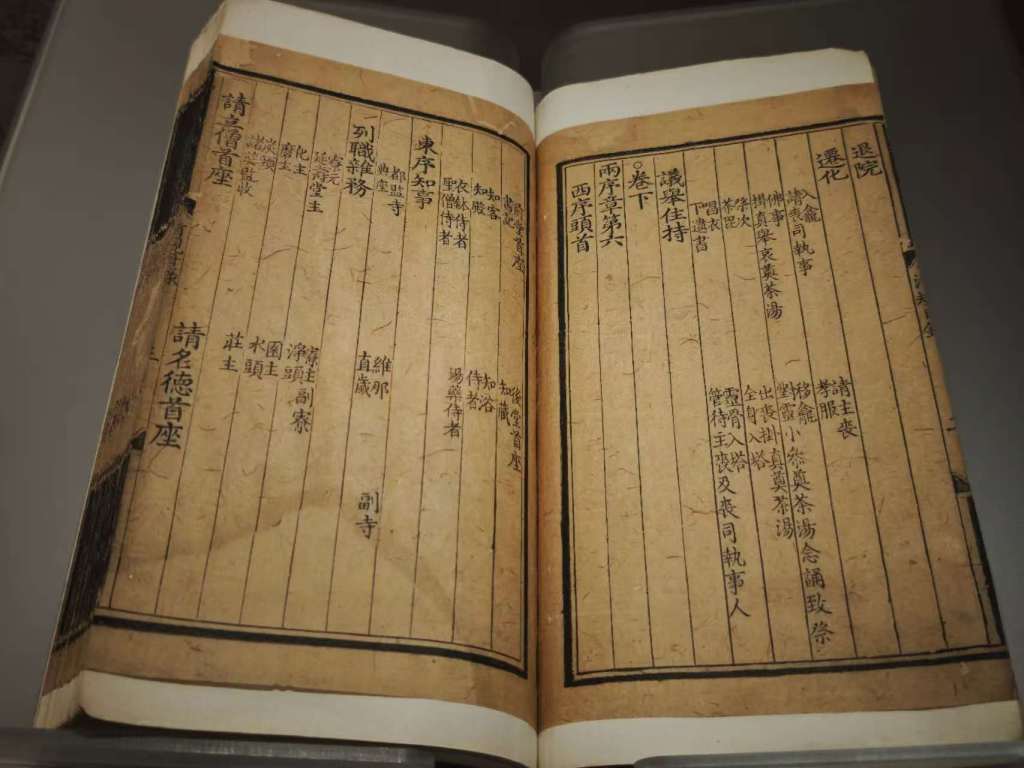 退院
遷化
入龕
請主喪
請喪司執事
孝服
佛事
移龕
掛真舉哀奠茶湯
對靈小參奠茶湯念誦致祭
祭次
出喪掛真奠茶湯
茶毘
全身入塔
唱衣
靈骨入塔
下遺書
管待主喪及喪司執事人
議舉住持
○卷下
兩序章第六
西序頭首
前堂首座
後堂首座
書記
知藏
知客
知浴
知殿
侍者
衣鉢侍者
湯藥侍者
聖僧侍者
東序知事
都監寺
維那
副寺
典座
直歲
列職雜務
寮元
寮主副寮
延壽堂主
淨頭
化主
園主
磨主
水頭
炭頭
莊主
諸莊監收
請立僧首座
請名德首座